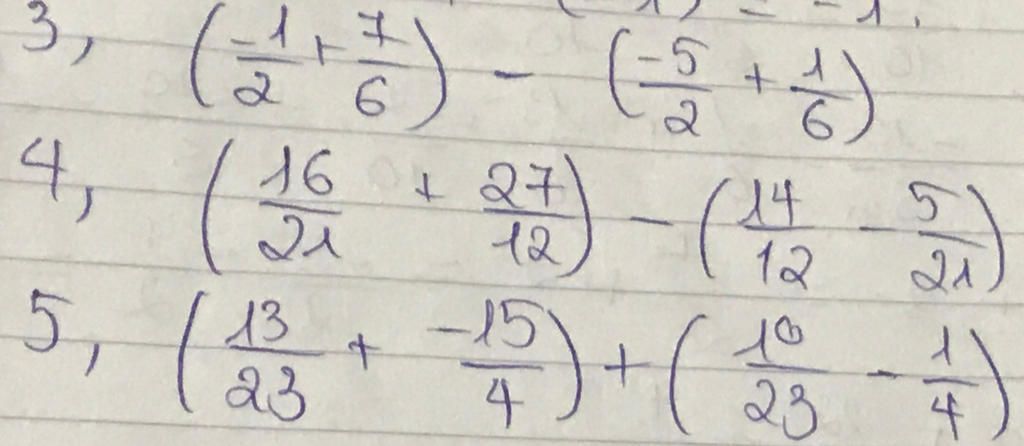 3, (-1/2 + 7/6) - (-5/2 + 1/6)
4, (16/21 + 27/12) - (14/12 - 5/21)
5, (13/23 + -15/4) + (10/23 - 1/4)